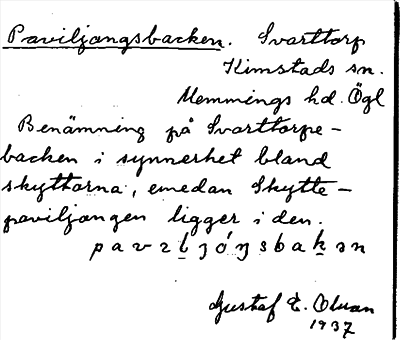 Paviljongsbacken. Svarttorp
Kimstads sn.
Memmings hd. Ögl
Benämning på Svarttorps-
backen i synnerhet bland
skyttarna, emedan Skytte-
paviljongen ligger i den.
Gustaf E. Olsson
1937